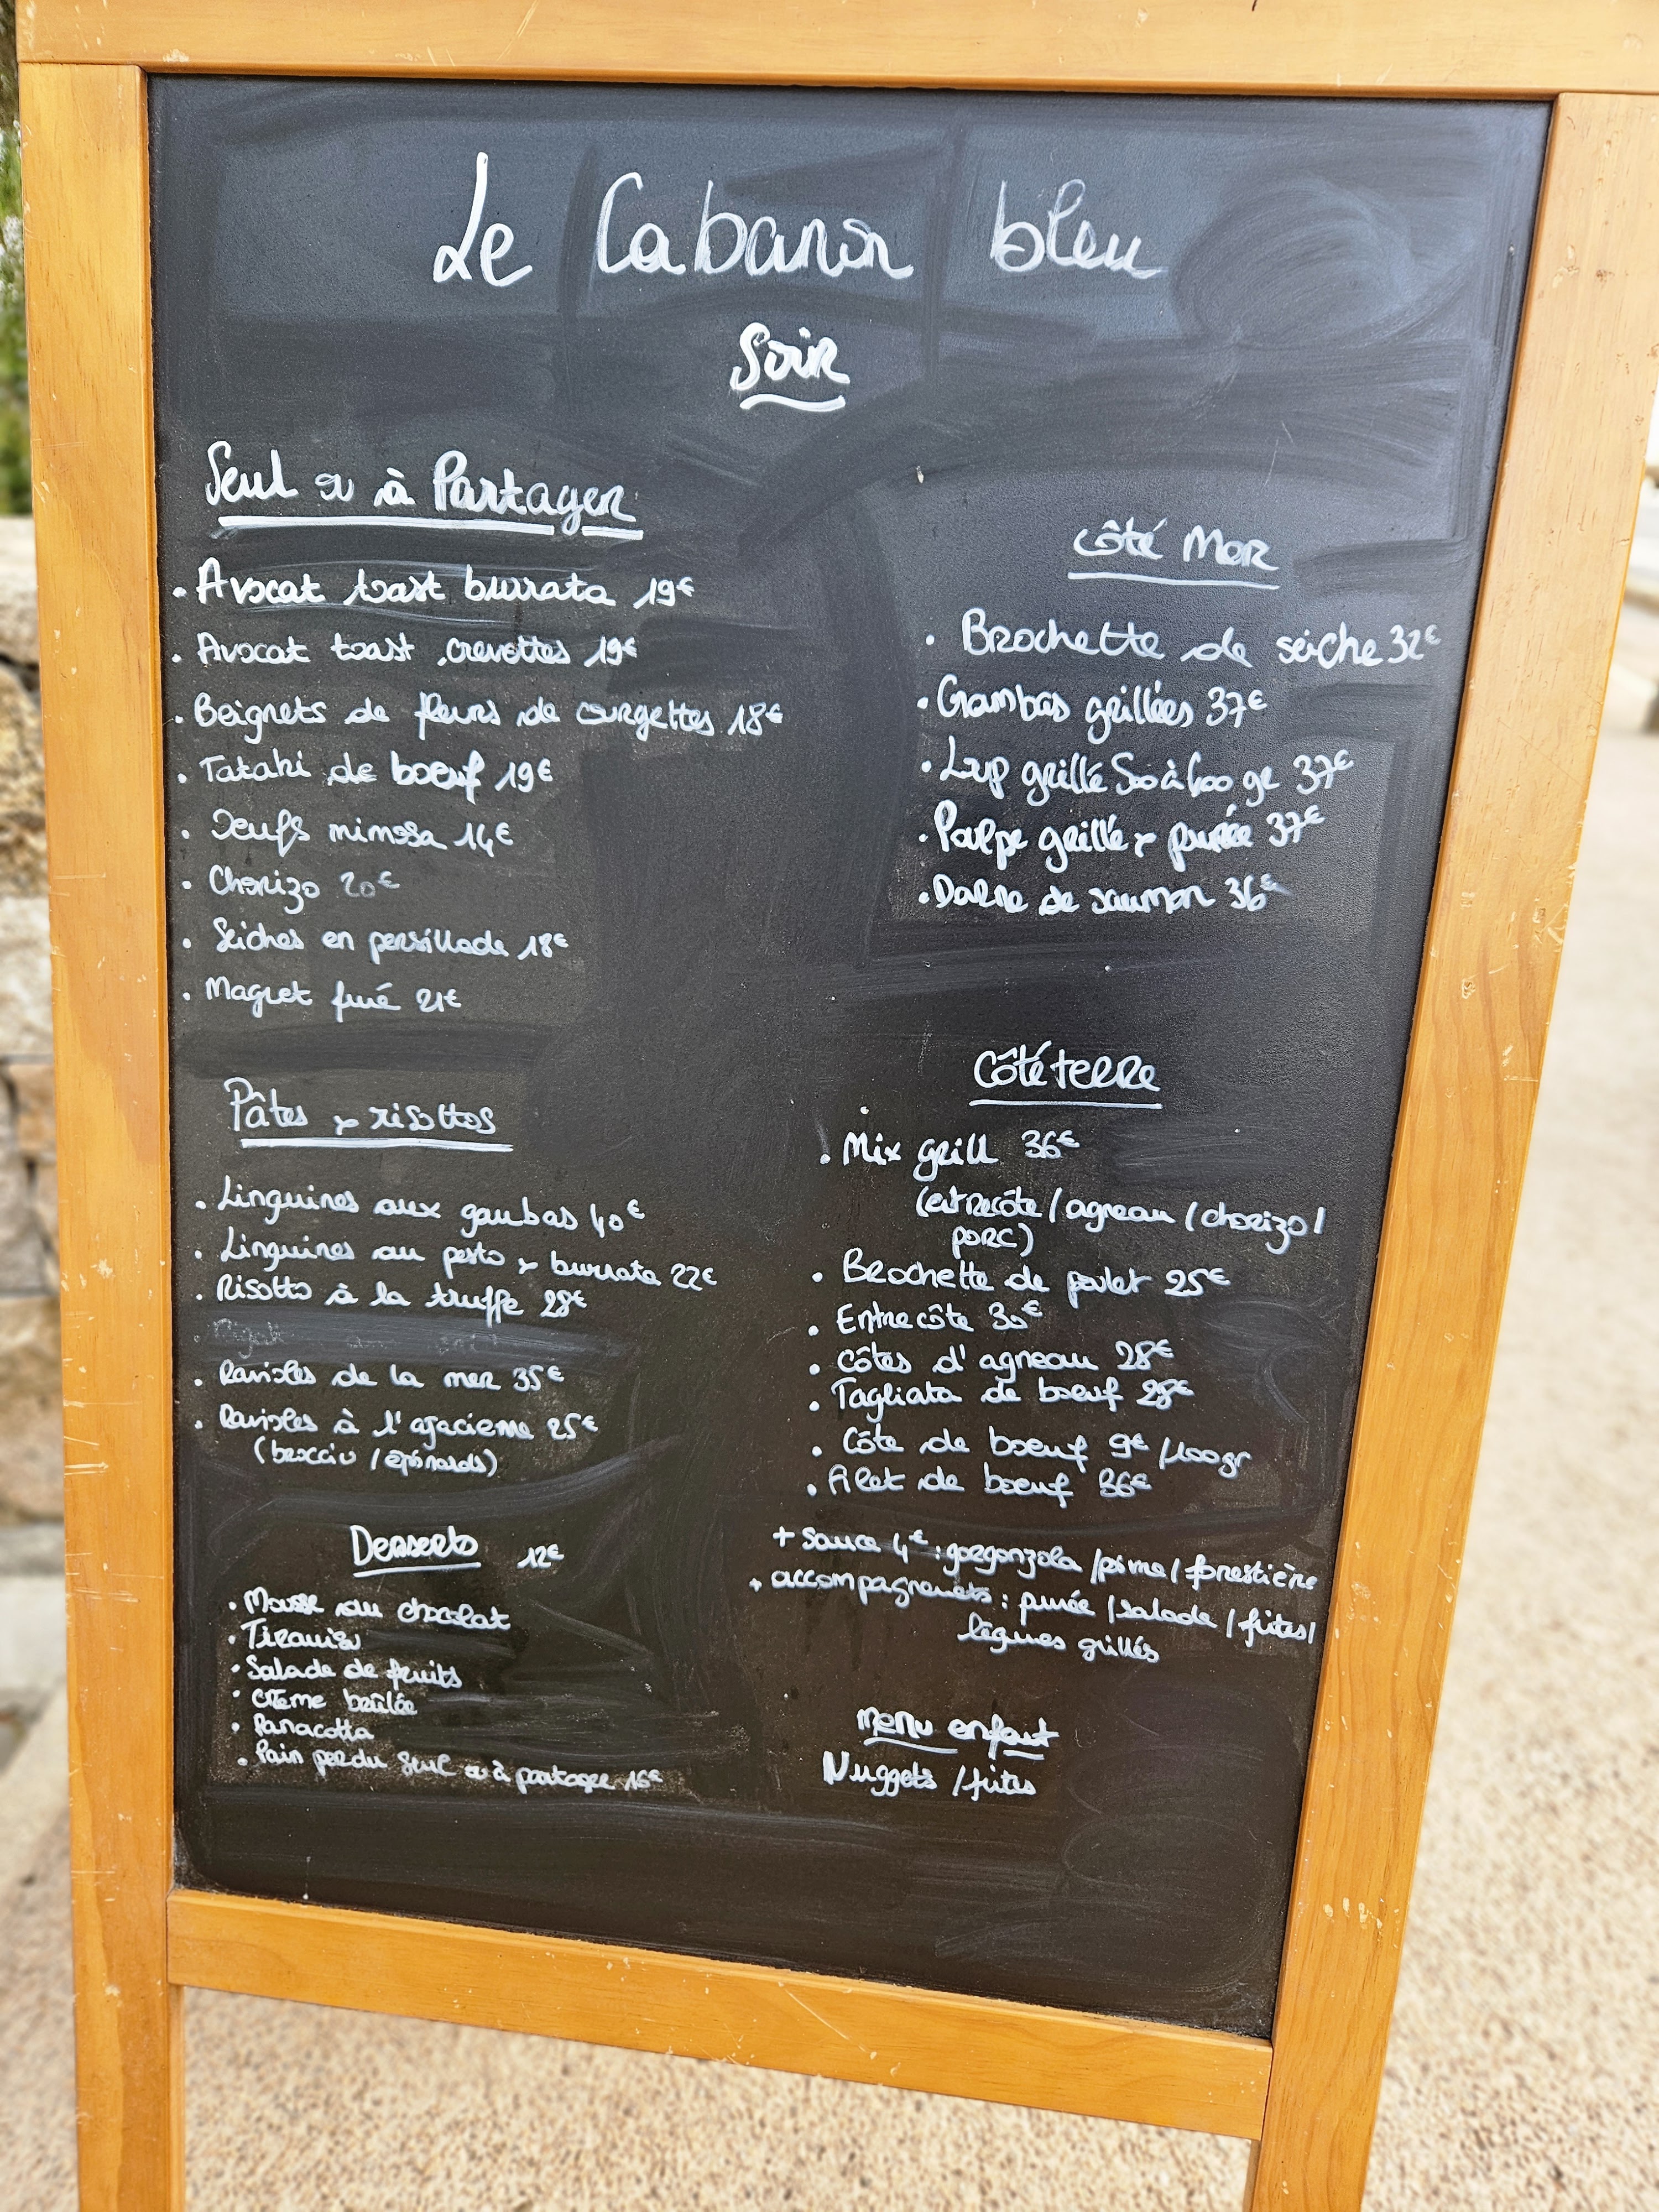 Le Cabanon bleu
Soir
Seul ou à Partager
. Avocat toast burrata 19€
. Avocat toast crevettes 19€
. Beignets de fleurs de courgettes 18€
. Tataki de boeuf 19€
. Oeufs mimosa 14€
. Chorizo 20€
. Seiches en persillade 18€
. Magret fumé 21€
Pâtes & risottos
. Linguines aux gambas 40€
. Linguines au pesto & burrata 22€
. Risotto à la truffe 28€
. Ravioles de la mer 35€
. Ravioles à l'ajacienne 25€
(brocciu / épinards)
Desserts 12€
. Mousse au chocolat
. Tiramisu
. Salade de fruits
. Crème brûlée
. Panacotta
. Pain perdu seul ou à partager 16€
Côté Mer
. Brochette de seiche 32€
. Gambas grillées 37€
. Loup grillé 500 à 600 gr 37€
. Poulpe grillé & purée 37€
. Darne de saumon 36€
Côté terre
. Mix grill 36€
(entrecôte / agneau / chorizo /
porc)
. Brochette de poulet 25€
. Entrecôte 30€
. Côtes d'agneau 28€
. Tagliata de boeuf 28€
. Côte de boeuf 9€ /100gr
. Filet de boeuf 36€
+ sauce 4€ : gorgonzola / / forestière
+ accompagnements : purée / salade / frites /
légumes grillés
menu enfant
Nuggets / frites